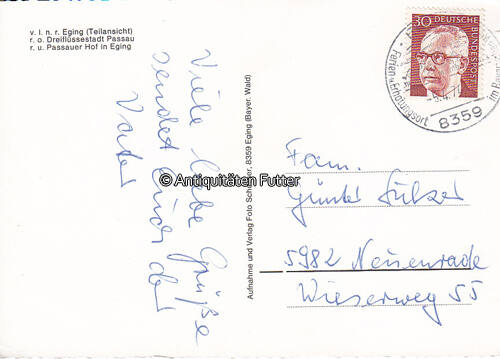 v. l. n. r. Eging (Teilansicht)
r. o. Dreiflüssestadt Passau
r. u. Passauer Hof in Eging
Viele liebe Grüße
sendet Euch der
Vater
© Antiquitäten Futter
Aufnahme und Verlag Foto 8359 Eging (Bayer. Wald)
30 DEUTSCHE BUNDESPOST
Ferien u. Erholungsort
im Bayer.
8359
Fam.
Günter Sulzer
5982 Neuenrade
Wieserweg 55